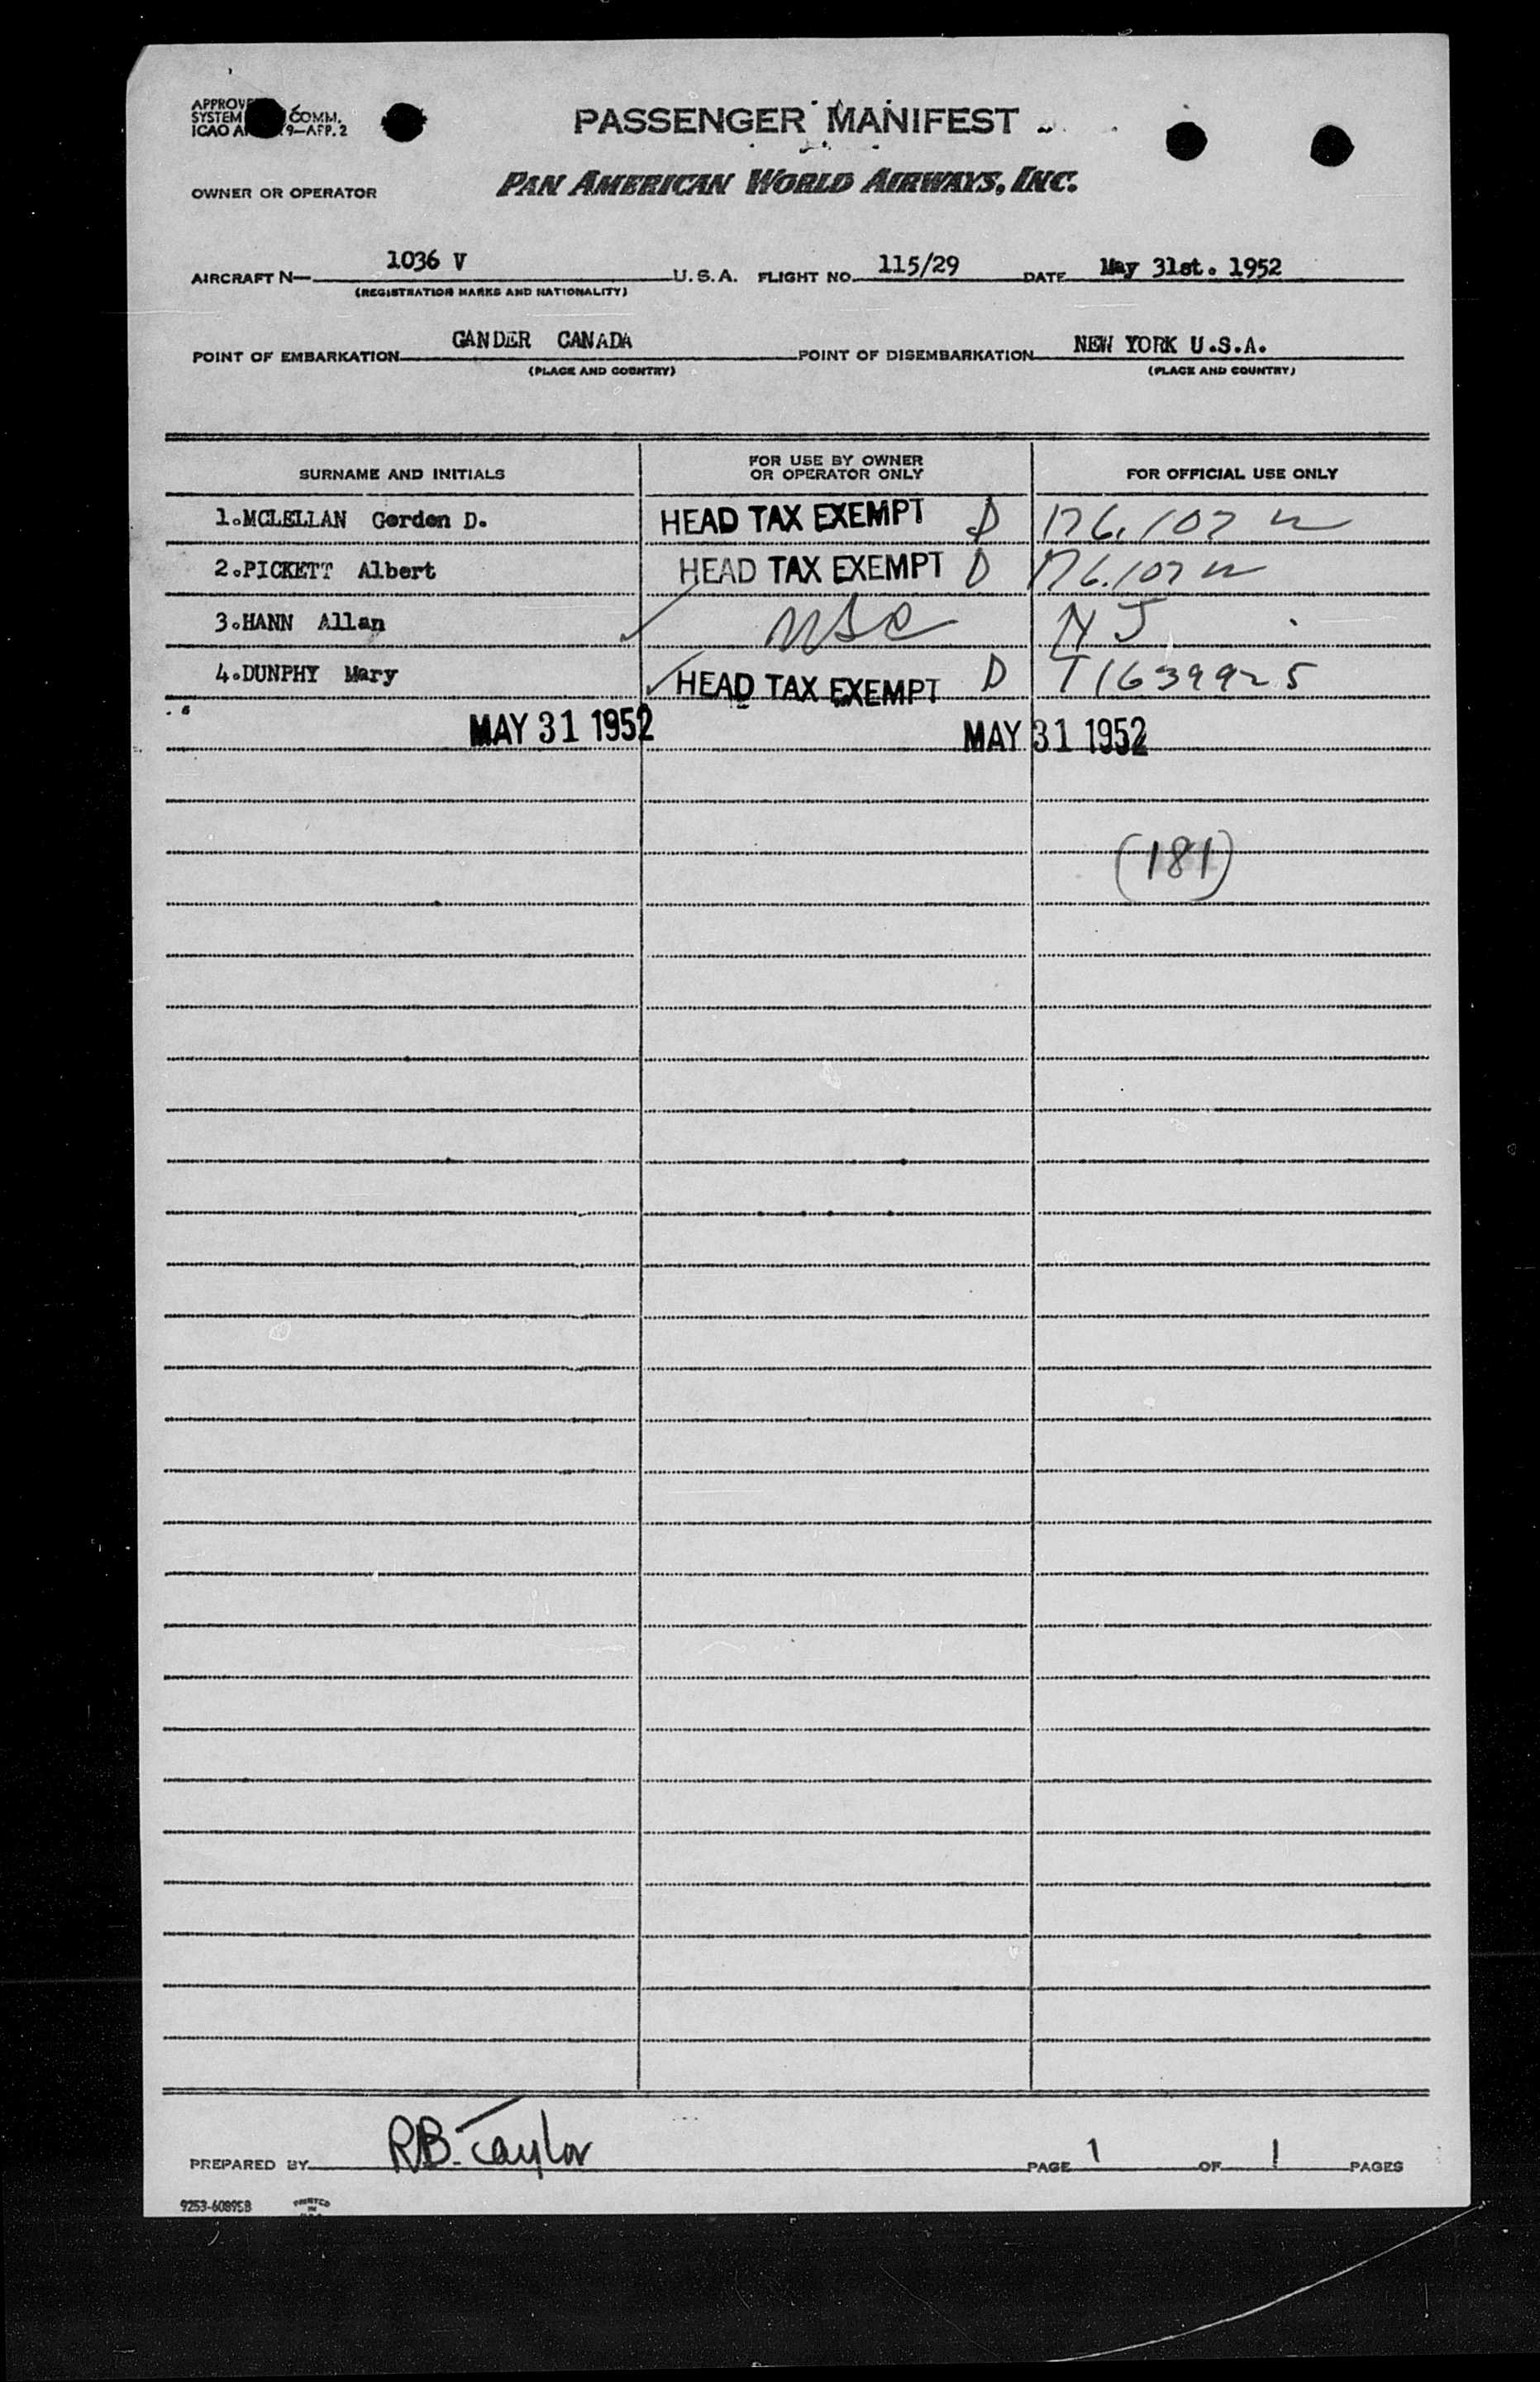 PASSENGER MANIFEST
COMM.
SYSTEM
9—APP. 2
ICAO
OWNER OR OPERATOR
PAN AMERICAN WORLD AIRWAYS, INC.
AIRCRAFT N— 1036 V U. S. A. FLIGHT NO. 115/29 DATE May 31st. 1952
(REGISTRATION MARKS AND NATIONALITY)
POINT OF EMBARKATION GANDER CANADA POINT OF DISEMBARKATION NEW YORK U.S.A.
(PLACE AND COUNTRY) (PLACE AND COUNTRY)
SURNAME AND INITIALS FOR USE BY OWNER OR OPERATOR ONLY FOR OFFICIAL USE ONLY
1.MCLELLAN Gordon D. HEAD TAX EXEMPT D 176.107
2.PICKETT Albert HEAD TAX EXEMPT D 176.107
3.HANN Allan NJ
4.DUNPHY Mary HEAD TAX EXEMPT D T1639925
MAY 31 1952 MAY 31 1952
(181)
PREPARED BY R.B. Taylor PAGE 1 OF 1 PAGES
9253-60895B PRINTED IN